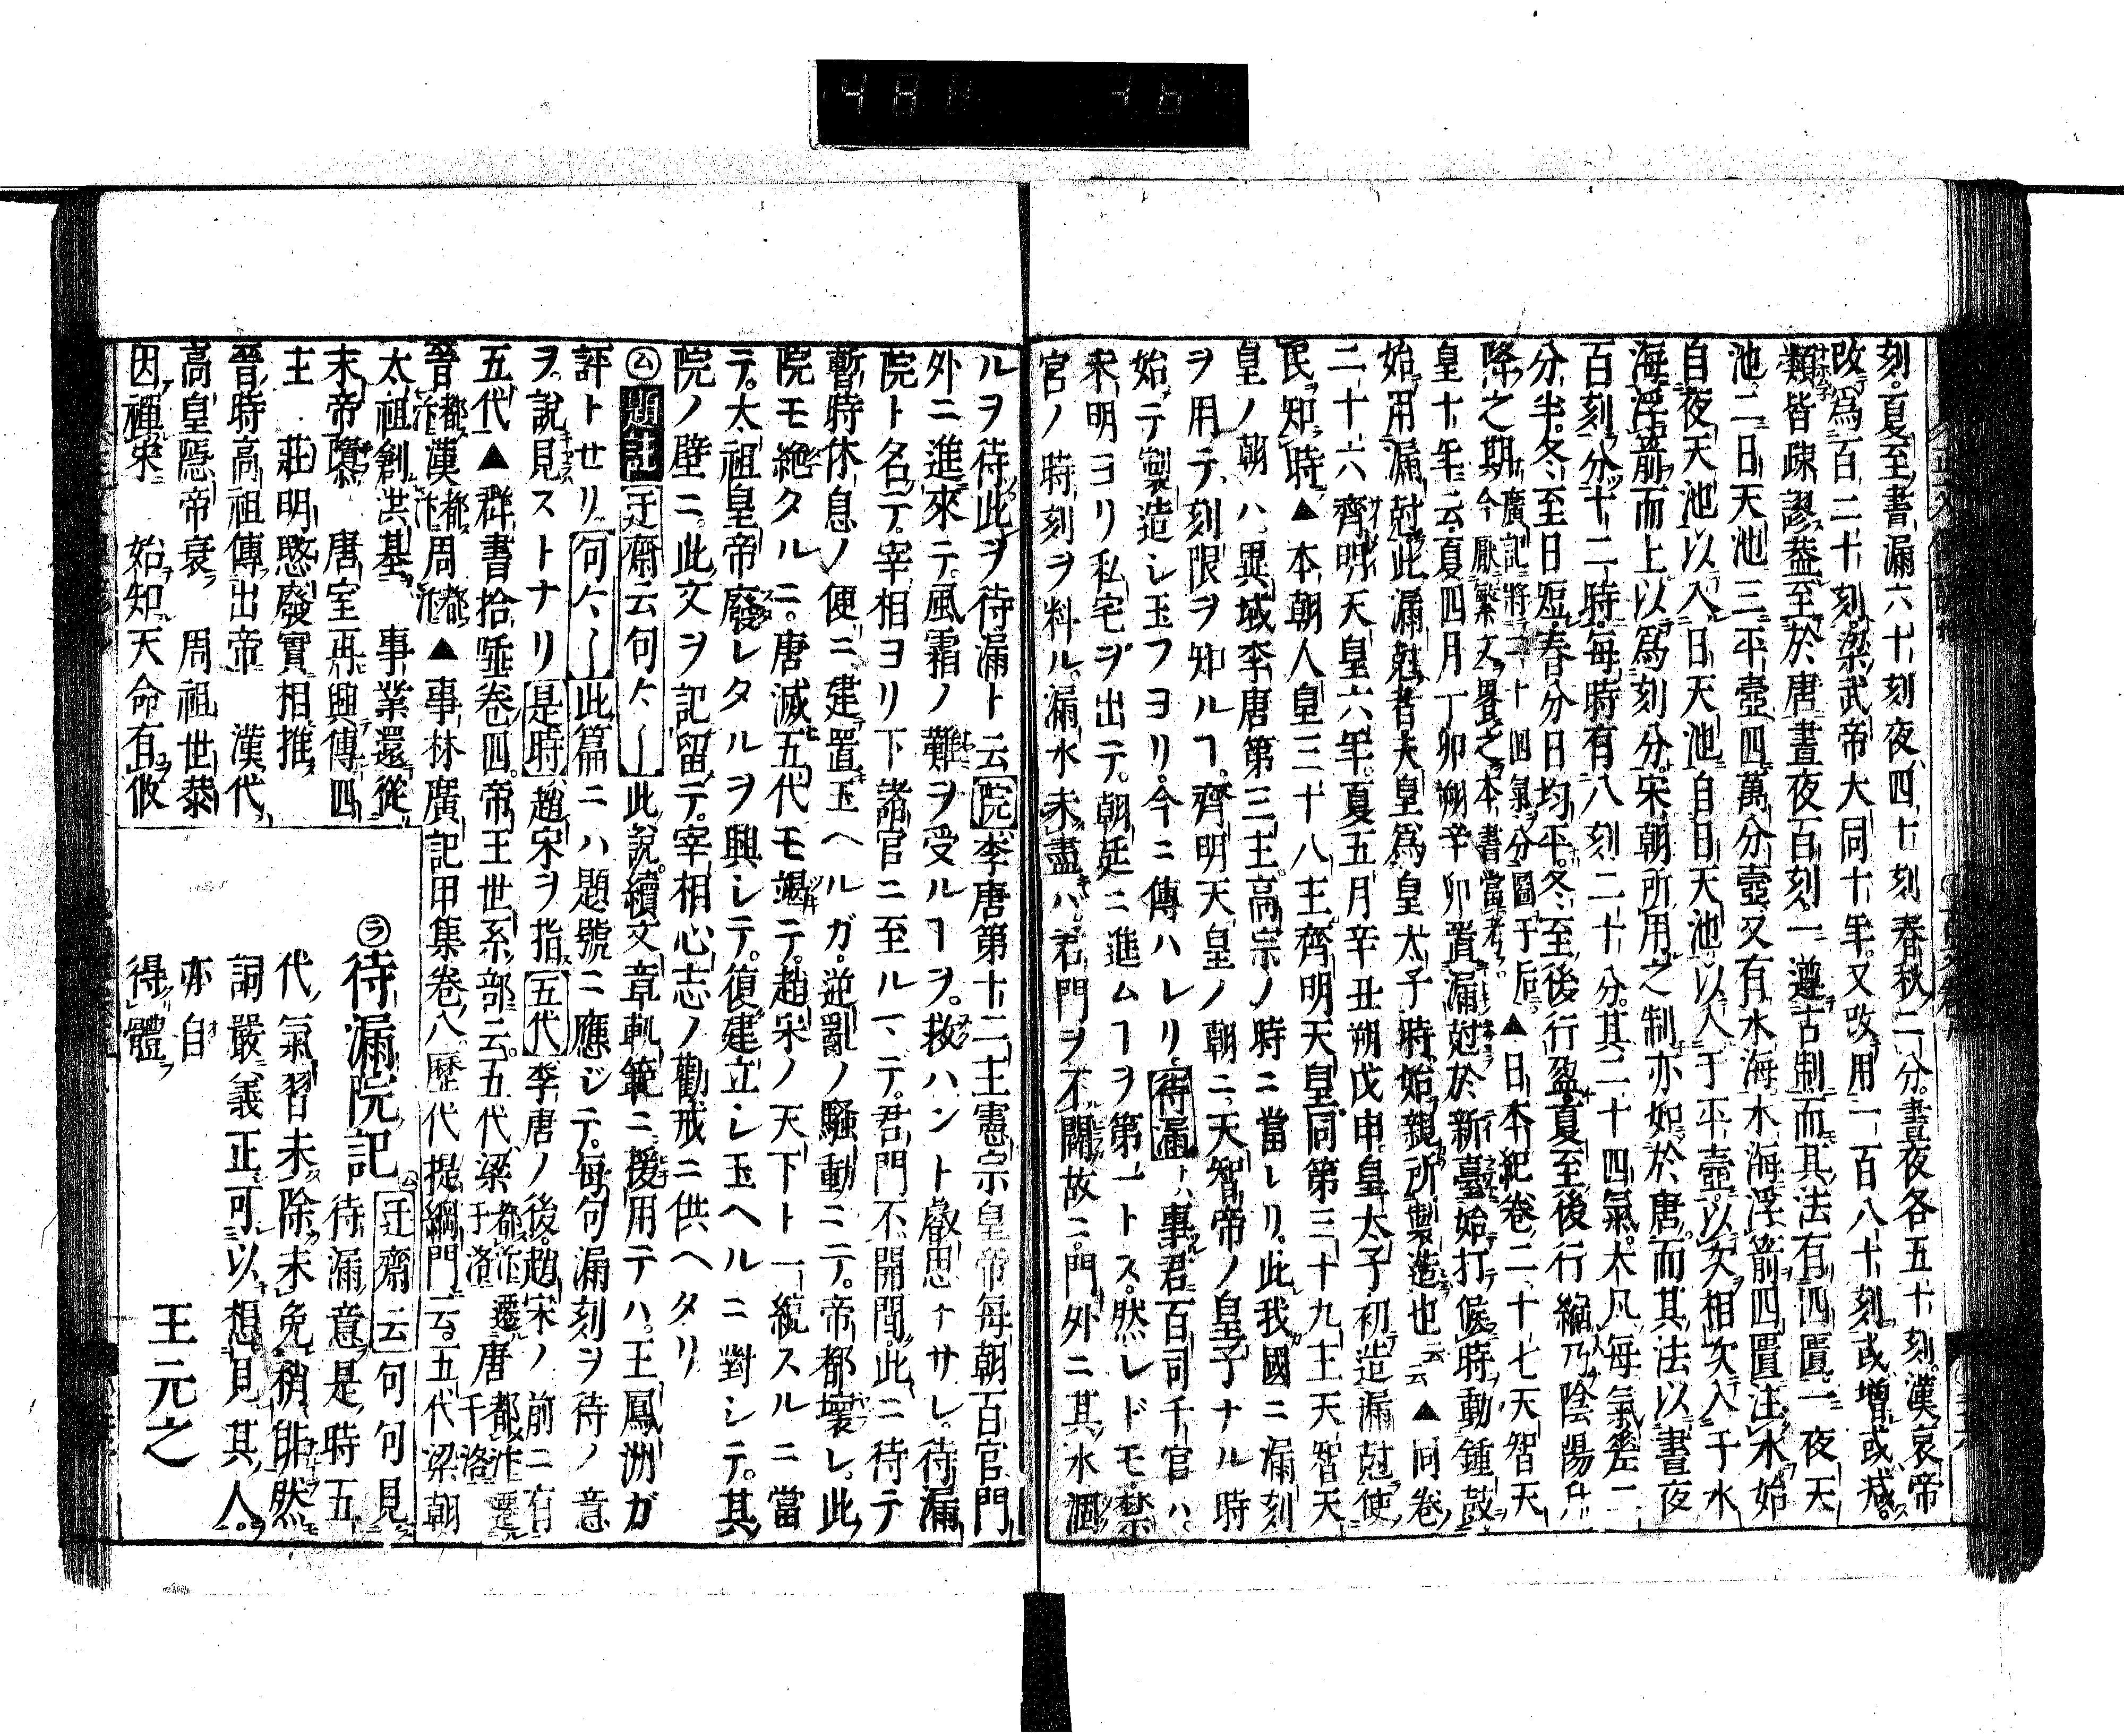 刻。夏至晝漏六十刻夜四十刻春秋二分。晝夜各五十刻。漢哀帝
改爲百二十刻。梁武帝大同十年。又改用一百八十刻。或增或減。
類皆疎謬。蓋至於唐晝夜百刻。一遵古制。而其法有四匱。一夜天
池。二日天池三平壺四萬分壺。又有水海。水海浮箭。四匱注水始
自夜天池以入日天池。自日天池。以入于平壺。以次相次入于水
海。浮箭而上。以爲刻分。宋朝所用之制。亦如於唐。而其法以晝夜
百刻。分十二時。每時有八刻二十分。其二十四氣。大凡每氣差二
分半。冬至日短。春分日均平。冬至後行盈。夏至後行縮。乃陰陽升
降之期
皇十年云。夏四月丁卯朔辛卯。置漏尅於新臺。始打候時動鍾鼓
始用漏尅。此漏尅者天皇爲皇太子時。始親所製造也云云▲同卷
二十六齊明天皇六年。夏五月辛丑朔戊申。皇太子初造漏尅。使
民知時▲本朝人皇三十八主齊明天皇同第三十九主天智天
皇ノ朝ハ。異域李唐第三主。高宗ノ時ニ當レリ。此我國ニ漏刻
ヲ用テ刻限ヲ知ルヿ。齊明天皇ノ朝ニ。天智帝ノ皇子ナル時
始テ製造シ玉フヨリ。今ニ傳ハレリ。待漏トハ事君百司千官ハ。
未明ヨリ私宅ヲ出テ。朝廷ニ進ムヿヲ第一トス。然レドモ。禁
宮ノ時刻ヲ料ル。漏水未盡ハ。君門ヲ不開故ニ。門外ニ其水涸
ルヲ待。此ヲ待漏ト云院李唐第十二主憲宗皇帝每朝百官門
外ニ進來テ。風霜ノ難ヲ受ルヿヲ。救ハント叡思ナサレ。待漏
院ト名テ。宰相ヨリ下諸官ニ至ルマデ。君門不開間。此ニ待テ
暫時休息ノ便ニ建置玉ヘルガ。逆亂ノ騷動ニテ。帝都壞レ。此
院モ絶タルニ。唐滅五代モ竭テ。趙宋ノ天下ト一統スルニ當
テ。太祖皇帝廢レタルヲ興シテ。復建立シ玉ヘルニ對シテ。其
院ノ壁ニ。此文ヲ記留テ。宰相心志ノ勸戒ニ供ヘタリ
㋰題註迂齋云句句〱此說。續文章軌範ニ援用テハ。王鳳洲ガ
評トセリ。句句〱此篇ニハ題號ニ應ジテ。每句漏刻ヲ待ノ意
ヲ。說見ストナリ是時趙宋ヲ指五代李唐ノ後。趙宋ノ前ニ有
五代▲群書拾唾卷四。帝王世系部云。五代梁都汴遷于洛唐都汴遷千洛
晉都汴漢都汴周都汴▲事林廣記甲集卷八歷代提綱門云。五代梁朝
太祖創洪基　事業還從
末帝隳　唐室再興傳四
主　莊明愍廢實相推
晉時高祖傳出帝　漢代
高皇隱帝衰　周祖世恭
因禪宋　始知天命有攸
㋶待漏院記　㋰迂齋云句句見
待漏意。是時五
代氣習未除。未免稍俳。然
詞嚴義正。可以想見其人。
亦自
得體　王元之